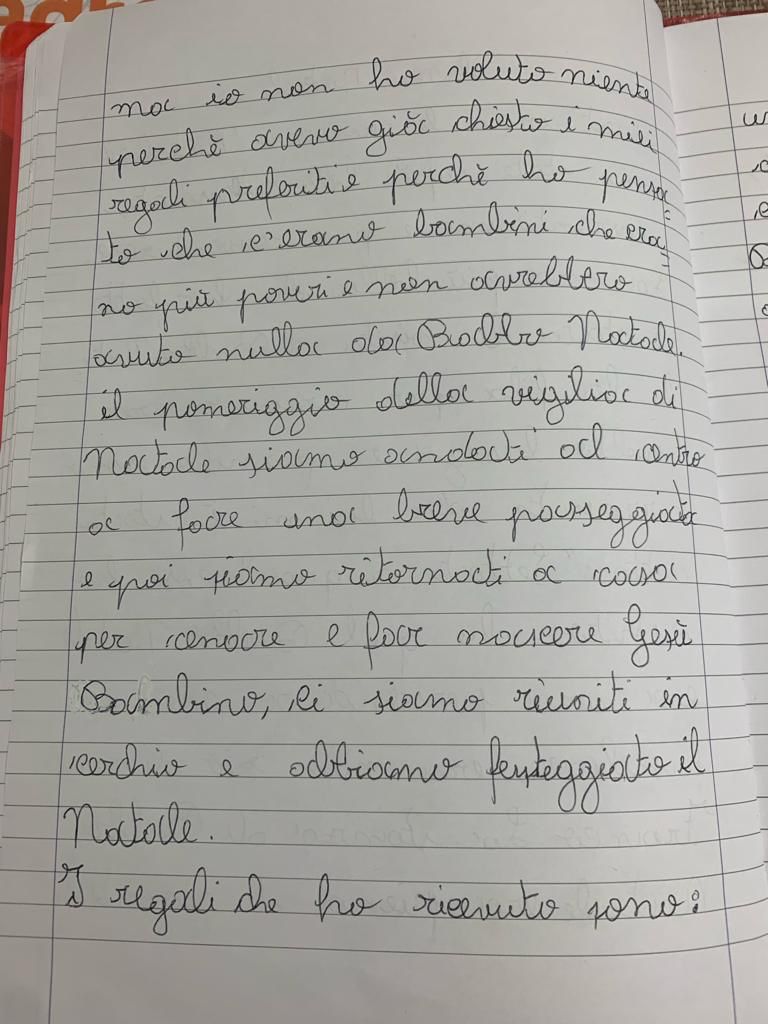 ma io non ho voluto niente
perchè avevo già chiesto i miei
regali preferiti e perchè ho pensa=
to che c'erano bambini che era=
no più poveri e non avrebbero
avuto nulla da Babbo Natale.
il pomeriggio della vigilia di
Natale siamo andati al centro
a fare una breve passeggiata
e poi siamo ritornati a casa
per cenare e far nascere Gesù
Bambino, ci siamo riuniti in
cerchio e abbiamo festeggiato il
Natale.
I regali che ho ricevuto sono: